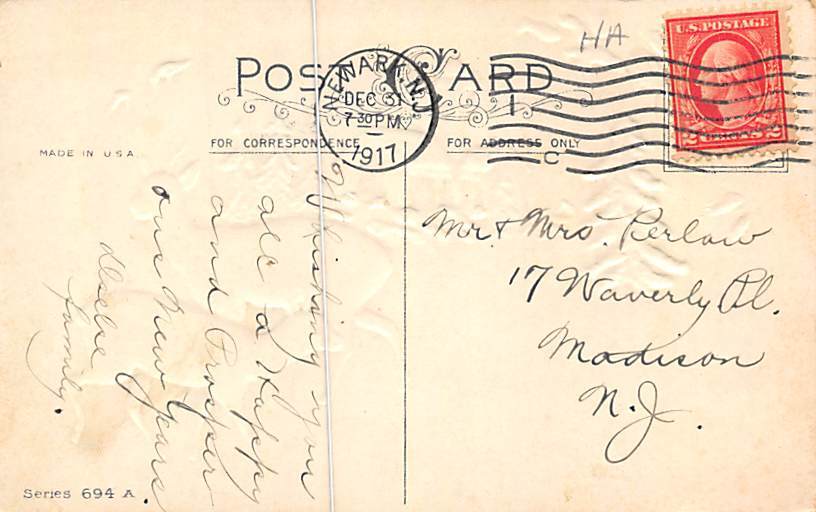 HA
U.S. POSTAGE
2 CENTS 2
POST CARD
NEWARK, N.J.
DEC 31
7 30 PM
1917
1
C
MADE IN U.S.A.
FOR CORRESPONDENCE
FOR ADDRESS ONLY
Whishing you
all a Happy
and Prosper
ous New Years
family.
Mr. & Mrs. Perlaw
17 Waverly Pl.
Madison
N.J.
Series 694 A.